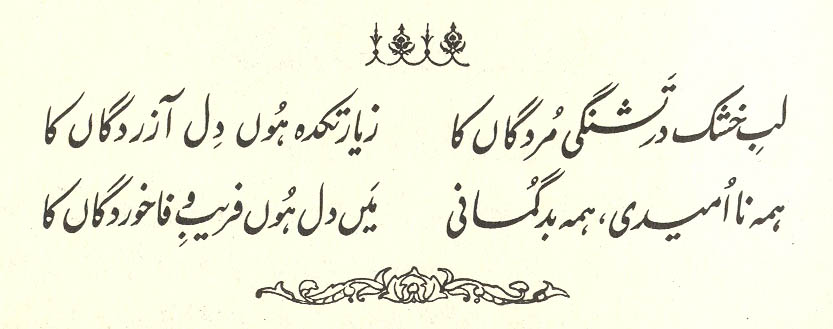 لبِ خشک در تَشنگی مُردگاں کا زیارتکدہ ہُوں دِل آزردگاں کا
ہمہ نا اُمیدی، ہمہ بدگُمانی مَیں دل ہُوں فریبِ وفا خوردگاں کا